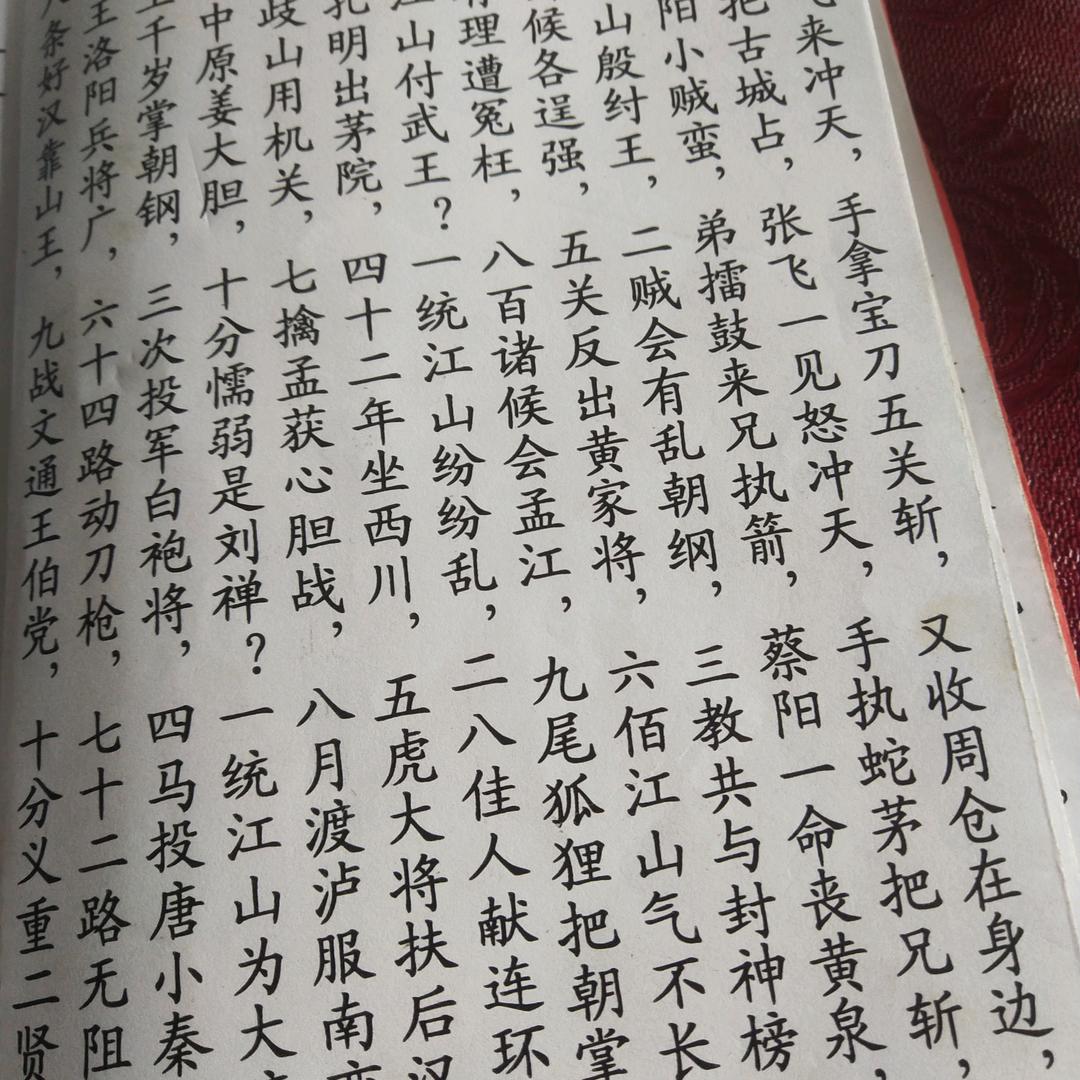 来冲天，手拿宝刀五关斩，又收周仓在身边，
把古城占，张飞一见怒冲天，手执蛇茅把兄斩，
阳小贼蛮，弟擂鼓来兄执箭，蔡阳一命丧黄泉，
山殷纣王，二贼会有乱朝纲，三教共与封神榜
候各逞强，五关反出黄家将，六佰江山气不长
理遭冤枉，八百诸候会孟江，九尾狐狸把朝掌
江山付武王？一统江山纷纷乱，二八佳人献连环
孔明出茅院，四十二年坐西川，五虎大将扶后汉
歧山用机关，七擒孟获心胆战，八月渡泸服南
中原姜大胆，十分懦弱是刘禅？一统江山为大
千岁掌朝钢，三次投军白袍将，四马投唐小秦
王洛阳兵将广，六十四路动刀枪，七十二路无阻
条好汉靠山王，九战文通王伯党，十分义重二贤